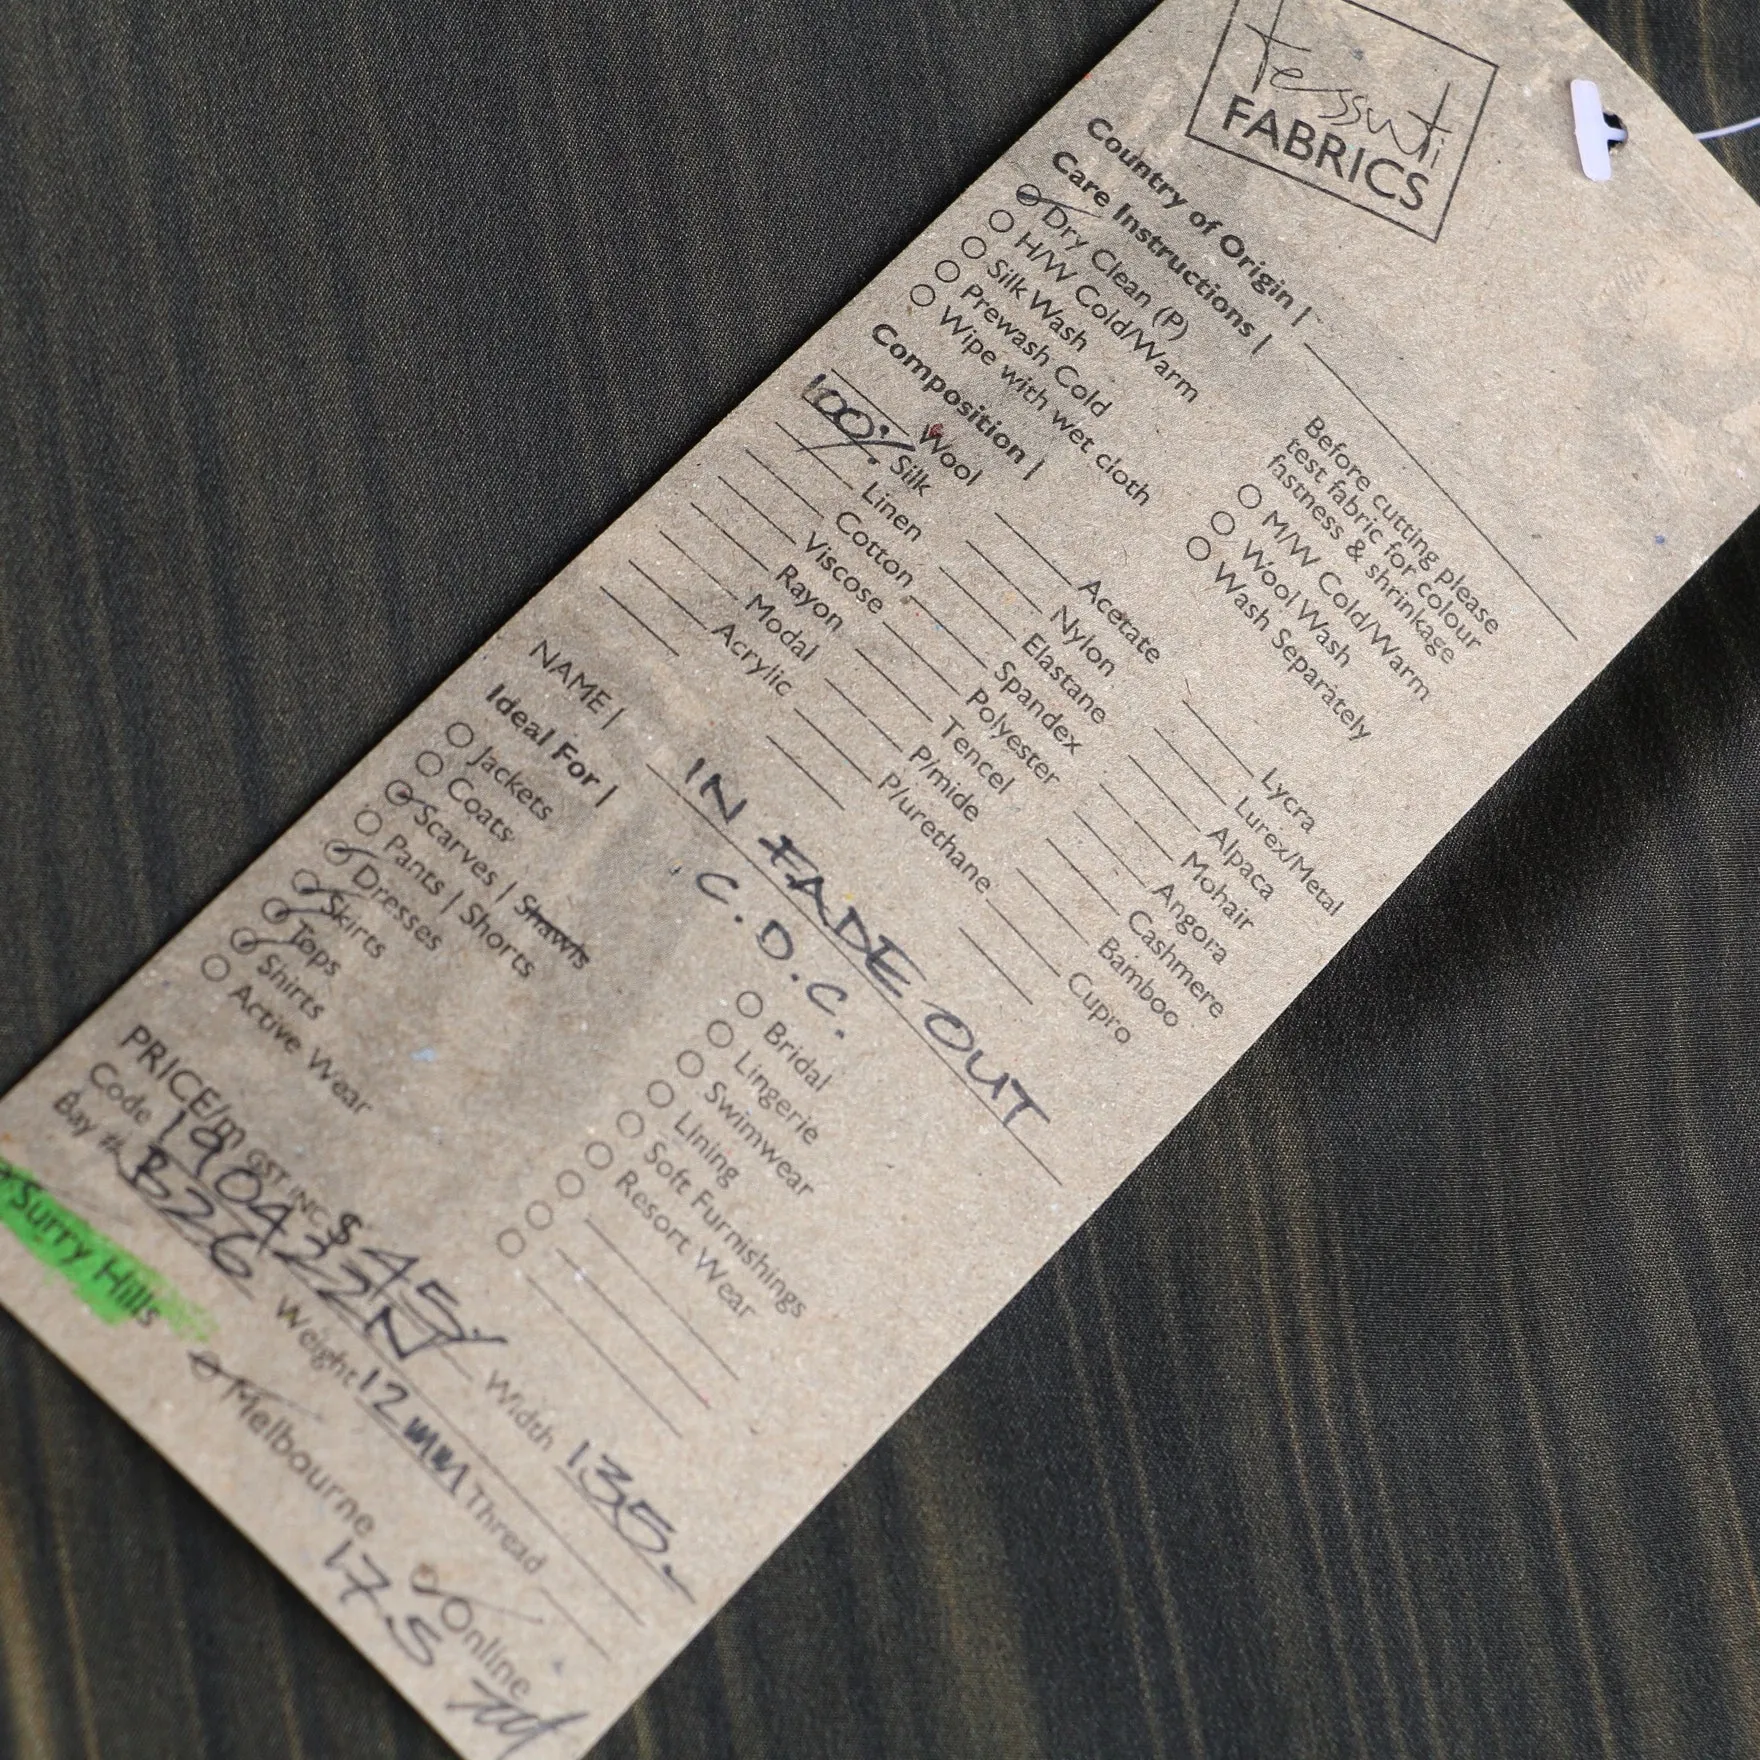 tessuti
FABRICS
Country of Origin |
Care Instructions |
Dry Clean (P)
H/W Cold/Warm
Silk Wash
Prewash Cold
Wipe with wet cloth
Before cutting please
test fabric for colour
fastness & shrinkage
M/W Cold/Warm
Wool Wash
Wash Separately
Composition |
Wool
100% Silk
Linen
Cotton
Viscose
Rayon
Modal
Acrylic
Acetate
Nylon
Elastane
Spandex
Polyester
Tencel
P/mide
P/urethane
Lycra
Lurex/Metal
Alpaca
Mohair
Angora
Cashmere
Bamboo
Cupro
NAME | IN FADE OUT
C.D.C.
Ideal For |
Jackets
Coats
Scarves | Shawls
Pants | Shorts
Dresses
Skirts
Tops
Shirts
Active Wear
Bridal
Lingerie
Swimwear
Lining
Soft Furnishings
Resort Wear
PRICE/m GST INC $ 45 Width 135.
Code 190422N
Bay B26 Weight 12mm Thread
Surry Hills Melbourne Online
17.5